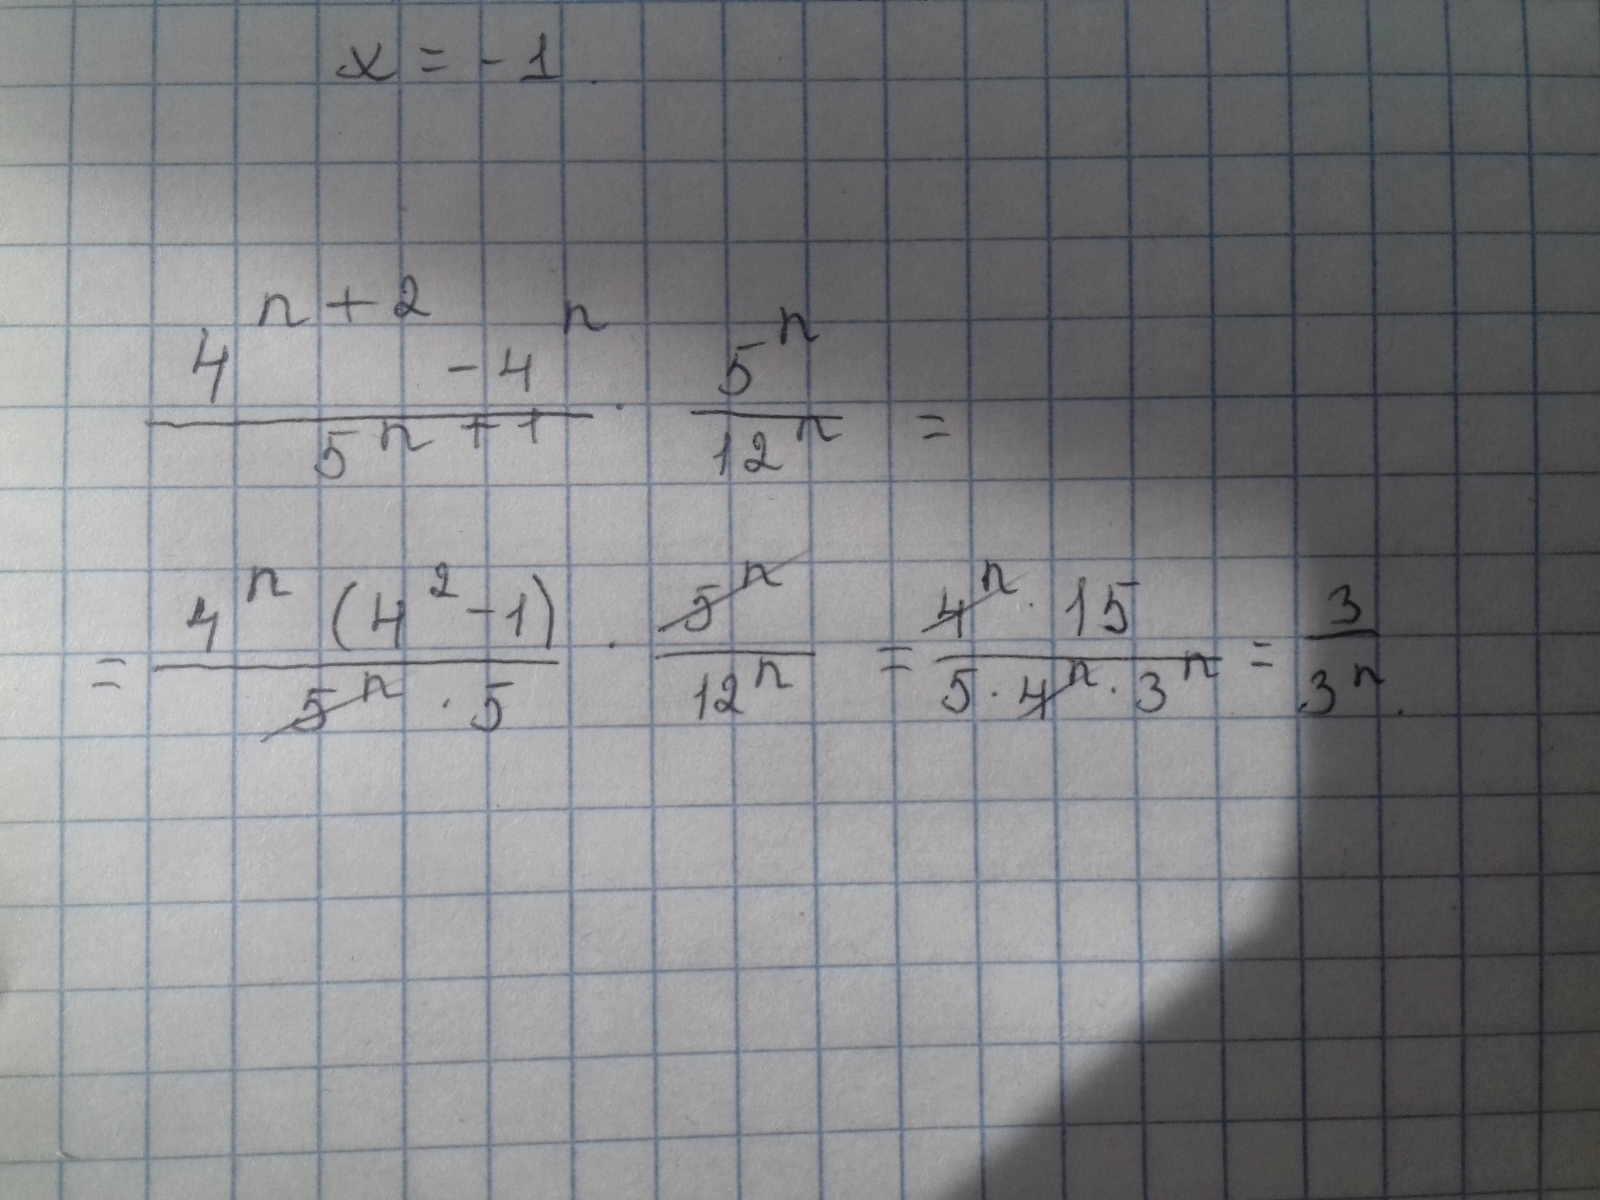 x = -1.
4^{n+2} - 4^n / 5^{n+1} · 5^n / 12^n =
= 4^n (4^2 - 1) / 5^n · 5 · 5^n / 12^n = 4^n · 15 / 5 · 4^n · 3^n = 3 / 3^n.